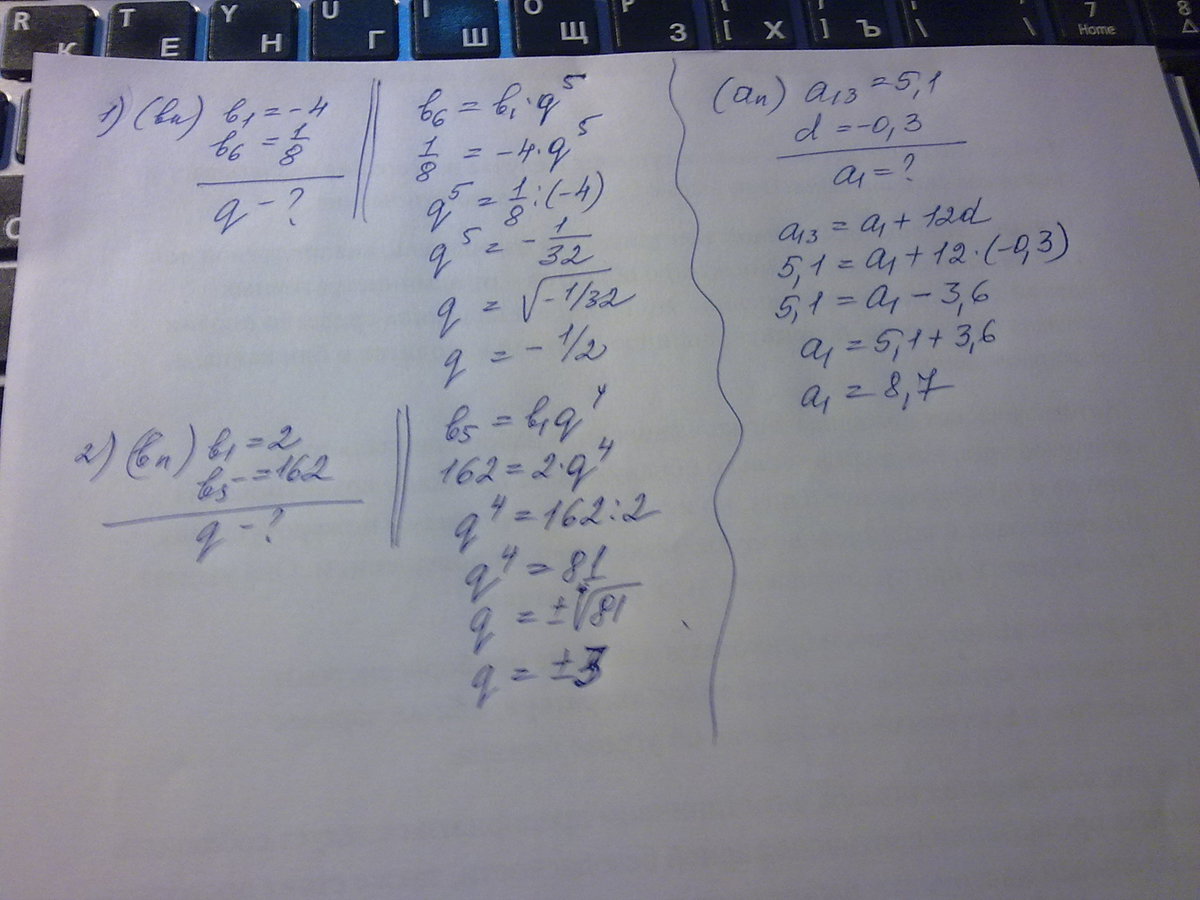 R T Y U I O P [ ] \ 7 8
К Е Н Г Ш Щ З Х Ъ \ Home
1) (вn) в₁ = -4
в₆ = 1/8
q - ?
в₆ = в₁·q⁵
1/8 = -4·q⁵
q⁵ = 1/8 : (-4)
q⁵ = -1/32
q = √-1/32
q = -1/2
2) (вn) в₁ = 2
в₅ = 162
q - ?
в₅ = в₁q⁴
162 = 2·q⁴
q⁴ = 162 : 2
q⁴ = 81
q = ±⁴√81
q = ±3
(an) a₁₃ = 5,1
d = -0,3
a₁ = ?
a₁₃ = a₁ + 12d
5,1 = a₁ + 12·(-0,3)
5,1 = a₁ - 3,6
a₁ = 5,1 + 3,6
a₁ = 8,7